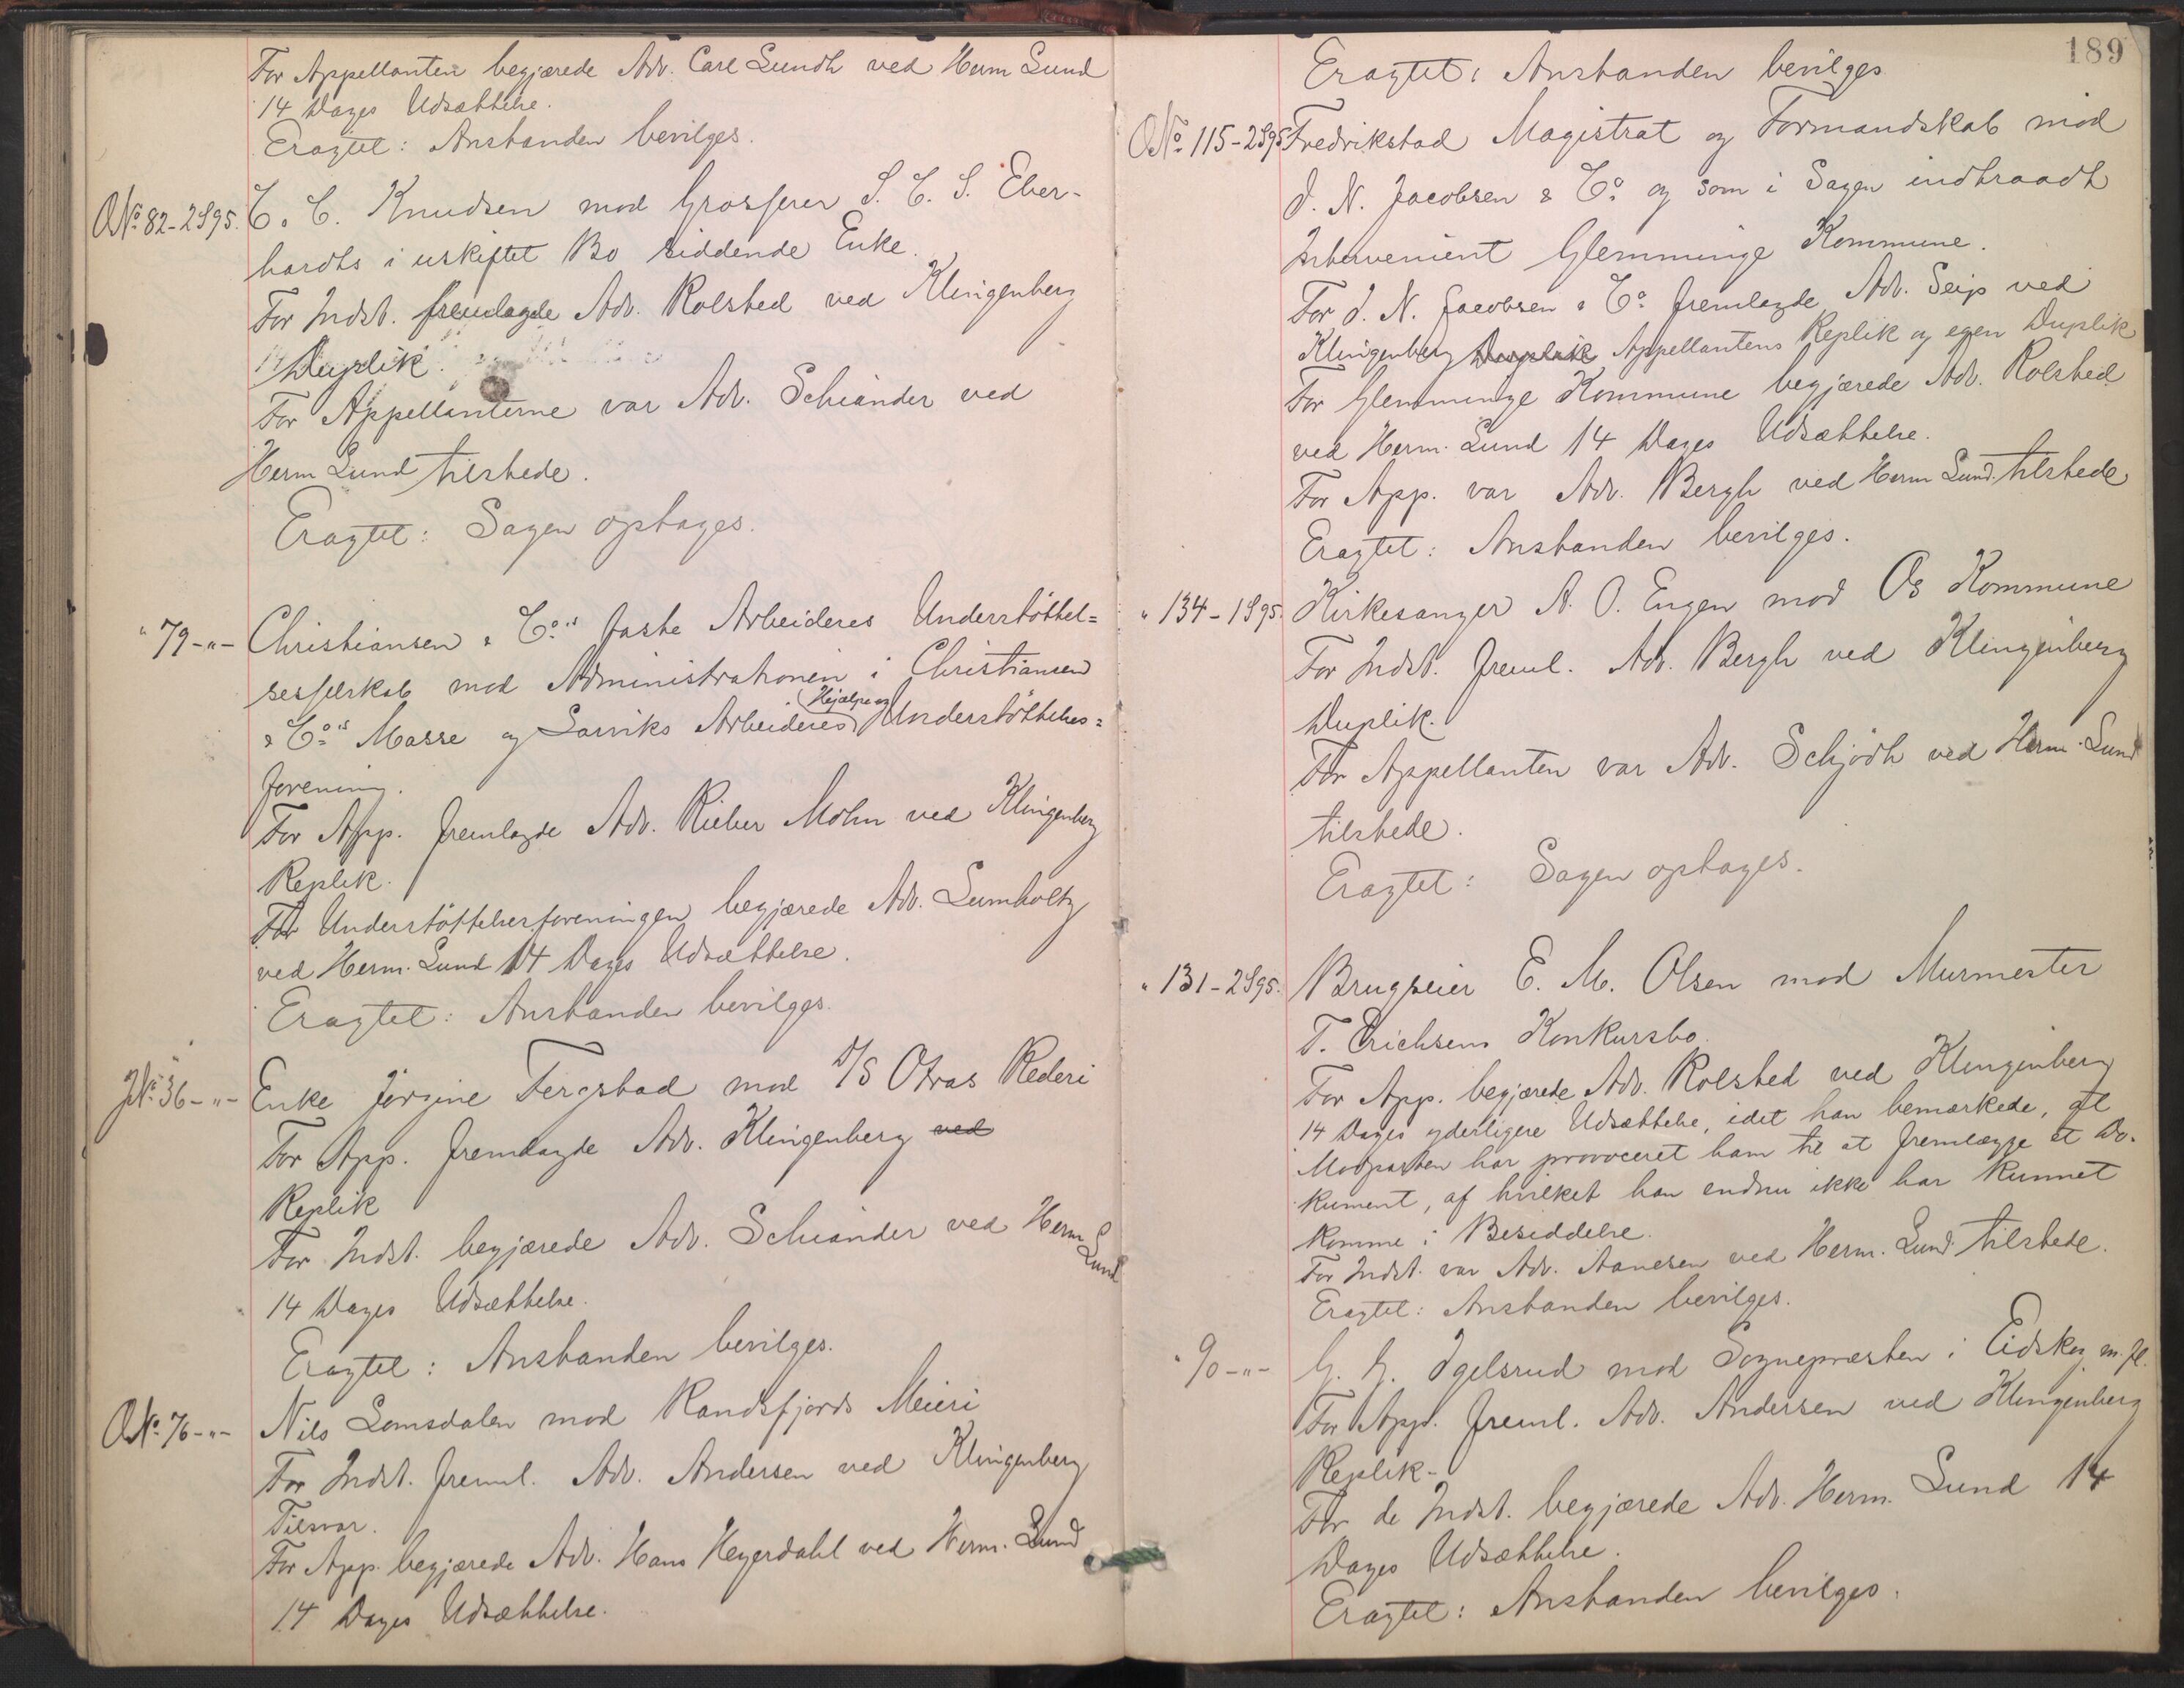 For Appellanten begjærede Adv. Carl Lundh ved Herm Lund
14 Dages Udsættelse.
Eragtet: Anstanden bevilges.
O No. 82-2S95. C. C. Knudsen mod Grosserer S. C. S. Eber-
hardts i uskiftet Bo siddende Enke.
For Indst. fremlagde Adv. Rolsted ved Klingenberg
Duplik.
For Appellanterne var Adv. Schiander ved
Herm Lund tilstede.
Eragtet: Sagen optages.
" 79-"- Christiansen & Co.s faste Arbeideres Understøttel=
sesselskab mod Administrationen i Christiansen
& Co.s Masse og Larviks Arbeideres Hjælpe og Understøttelses=
forening.
For App. fremlagde Adv. Rieber Mohn ved Klingenberg
Replik.
For Understøttelsesforeningen begjærede Adv. Lumholtz
ved Herm. Lund 14 Dages Udsættelse.
Eragtet: Anstanden bevilges.
J No. 36-"- Enke Jørgine Fergstad mod D/S Otras Rederi
For App. fremlagde Adv. Klingenberg ved
Replik
For Indst. begjærede Adv. Schiander ved Herm Lund
14 Dages Udsættelse.
Eragtet: Anstanden bevilges.
O No. 76-"- Nils Lomsdalen mod Randsfjords Meieri
For Indst. freml. Adv. Andersen ved Klingenberg
Tilsvar.
For App. begjærede Adv. Hans Heyerdahl ved Herm. Lund
14 Dages Udsættelse.
189
Eragtet: Anstanden bevilges
O No. 115-2S95 Fredrikstad Magistrat og Formandskab mod
J. N. Jacobsen & Co. og som i Sagen indtraadt
Intervenient Glemminge Kommune.
For J. N. Jacobsen & Co. fremlagde Adv. Seip ved
Klingenberg Duplik Appellantens Replik og egen Duplik
For Glemminge Kommune begjærede Adv. Rolsted
ved Herm. Lund 14 Dages Udsættelse.
For App. var Adv. Bergh ved Herm Lund. tilstede
Eragtet: Anstanden bevilges.
" 134-1S95. Kirkesanger A. O. Engen mod Os Kommune
For Indst. freml. Adv. Bergh ved Klingenberg
Duplik.
For Appellanten var Adv. Schjødt ved Herm. Lund
tilstede.
Eragtet: Sagen optages.
" 131-2S95. Brugseier E. M. Olsen mod Murmester
T. Erichsens Konkursbo.
For App. begjærede Adv. Rolsted ved Klingenberg
14 Dages yderligere Udsættelse, idet han bemærkede, at
Modparten har provoceret ham til at fremlægge et Do-
kument, af hvilket han endnu ikke har kunnet
komme i Besiddelse.
For Indst. var Adv. Aanesen ved Herm. Lund tilstede.
Eragtet: Anstanden bevilges.
" 90-"- G. G. Igelsrud mod Sognepræsten i Eidskog m. fl.
For App. freml. Adv. Andersen ved Klingenberg
Replik-
For de Indst. begjærede Adv. Herm. Lund 14
Dages Udsættelse.
Eragtet: Anstanden bevilges.